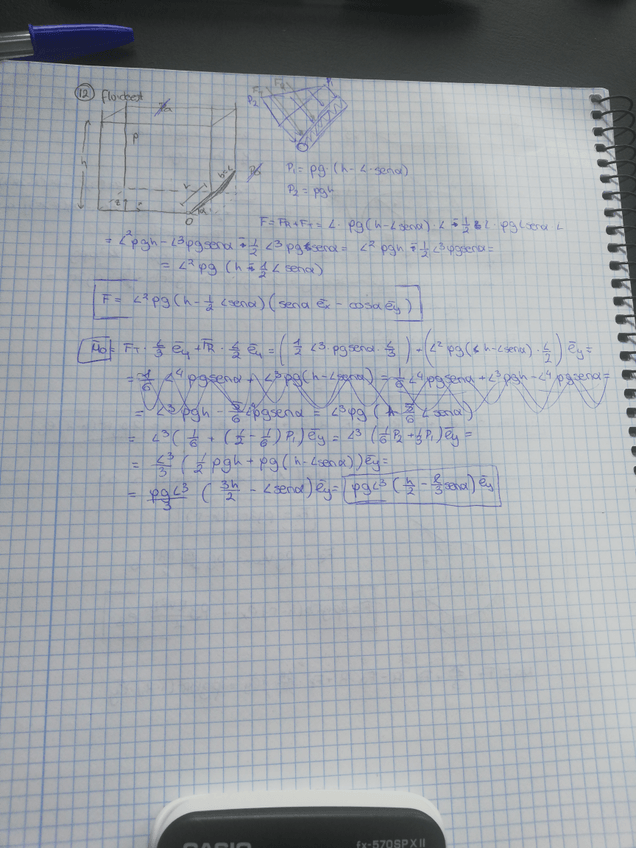 12 Flowtest
h
P
O
P₂
P₁
P₁ = ρg·(h - L·senα)
P₂ = ρgh
F = F_R + F_T = L · ρg(h - Lsenα) · L + 1/2 L · ρgLsenα L
= L²ρgh - L³ρgsenα + 1/2 L³ρgsenα = L²ρgh - 1/2 L³ρgsenα =
= L²ρg (h - 1/2 Lsenα)
F̄ = L²ρg(h - 1/2 Lsenα)(senα ēx - cosα ēy)
M̄o = F_T · L/3 ēy + F_R · L/2 ēy = (1/2 L³ρgsenα L/3) + (L²ρg(h - Lsenα) · L/2) ēy =
= 1/6 L⁴ρgsenα + L³ρg(h - Lsenα) = 1/6 L⁴ρgsenα + L³ρgh - L⁴ρgsenα =
= L³ρgh - 5/6 L⁴ρgsenα = L³ρg (h - 5/6 Lsenα)
= L³(1/6 + (1/2 - 1/6) P₁) ēy = L³ (1/6 P₂ + 1/3 P₁) ēy =
= L³/3 (1/2 ρgh + ρg(h - Lsenα)) ēy =
= ρgL³/3 (3h/2 - Lsenα) ēy = ρgL³ (h/2 - L/3 senα) ēy
CASIO fx-570SPX II